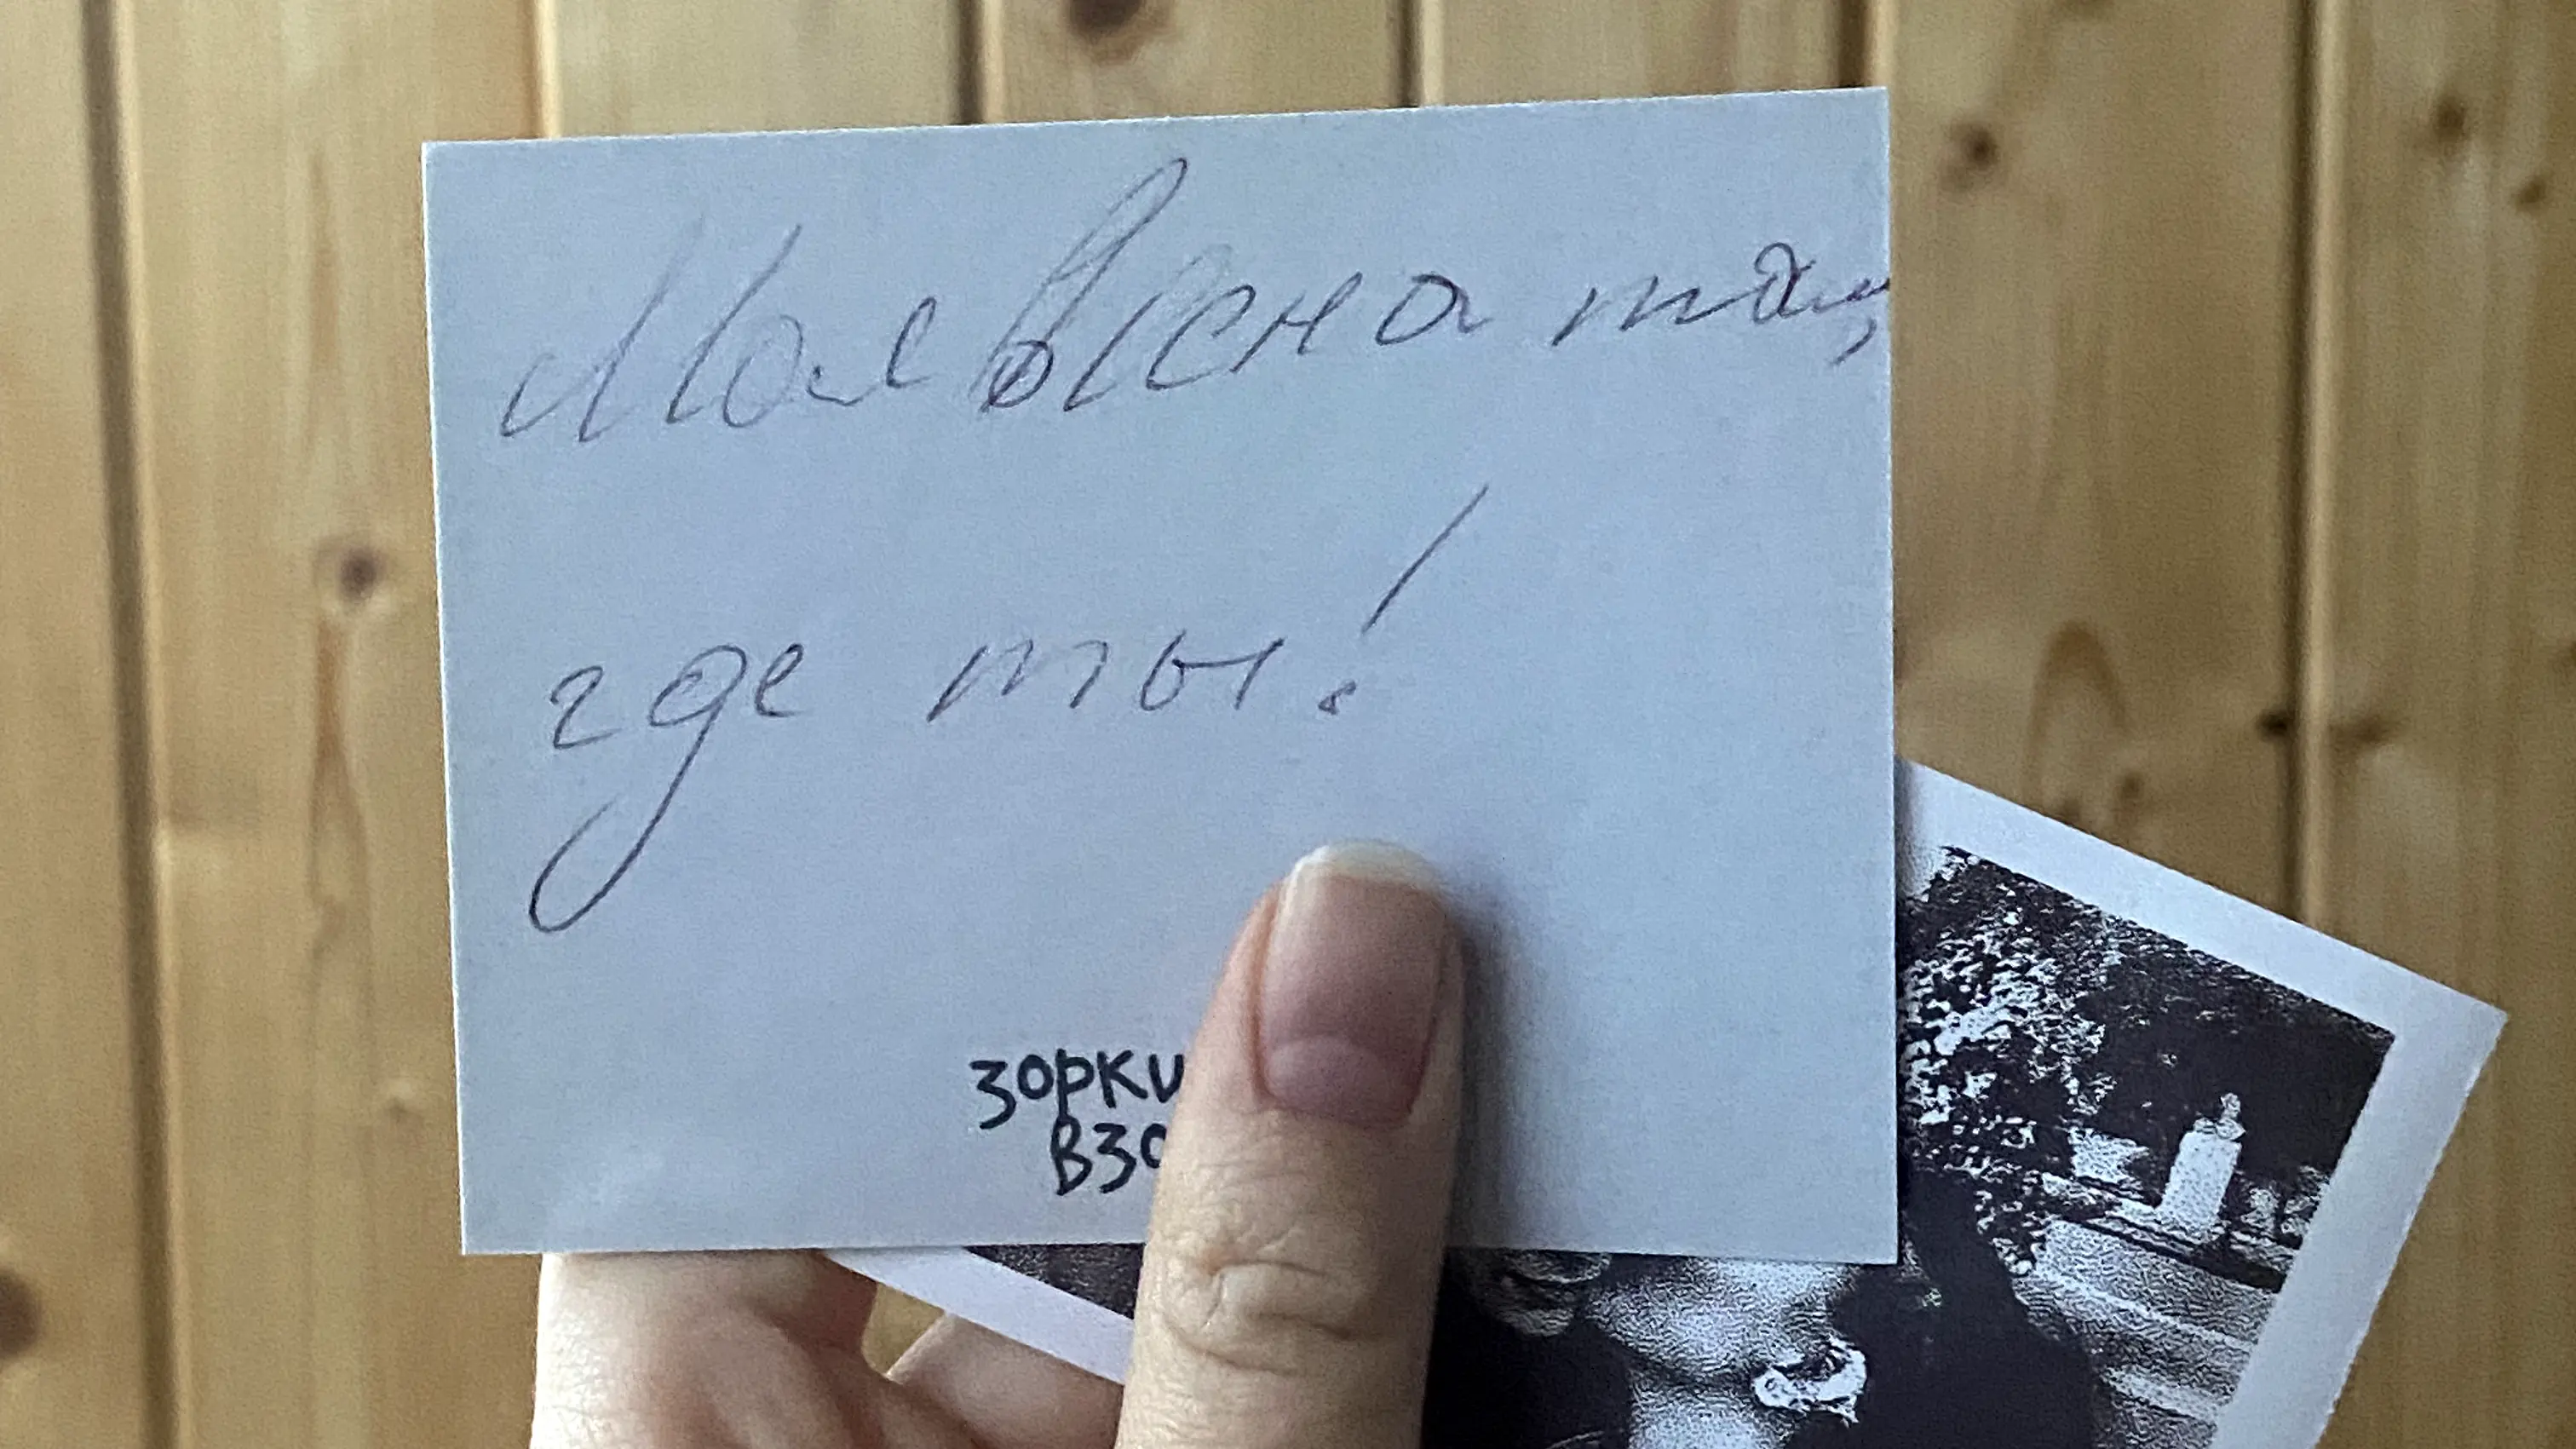 Моя весна там,
где ты!
зорки
взо